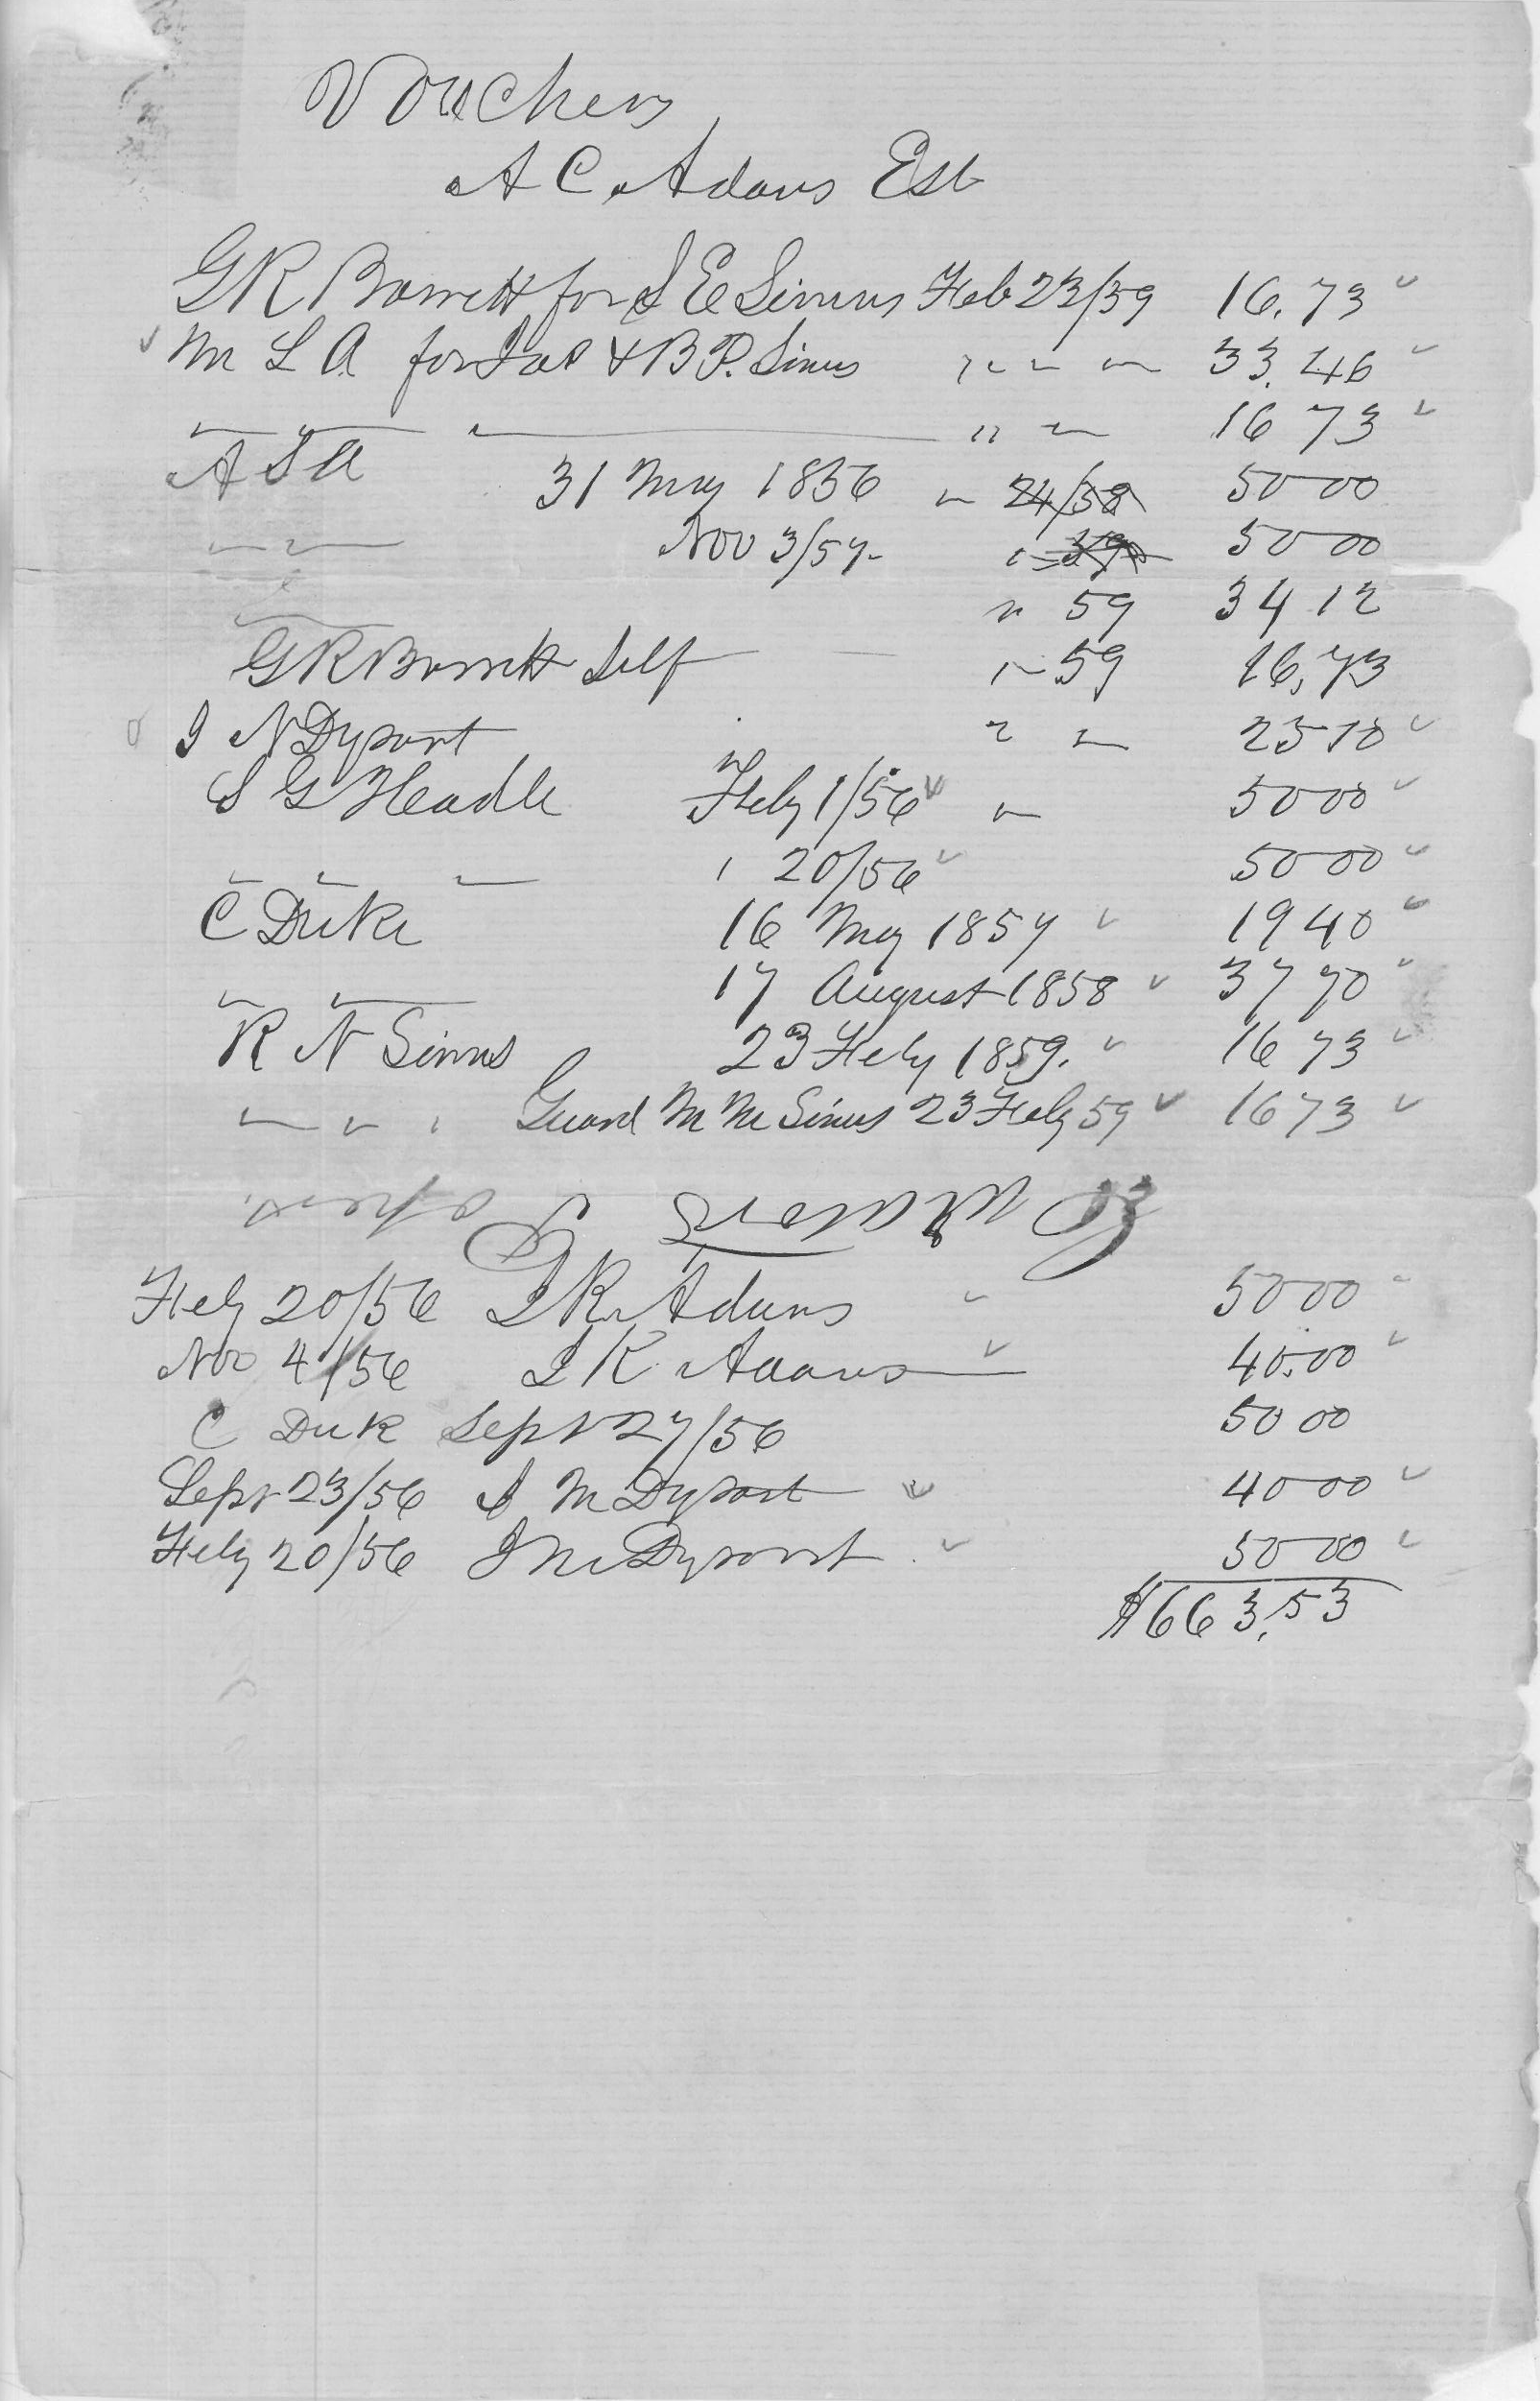 Vouchers
A C Adams Est
G R Barrett for S E Simms Feb 23/59 16.73
M L A for Jas & B P. Sims " " " 33.46
" " " " " 16 73
A S A 31 May 1856 " 24/58 50 00
" " Nov 3/57 " 50 00
" " 59 34 12
G R Barrett Self " 59 16,73
I N Dysart " " 25 10
S G Headle Feby 1/56 " 50 00
" " " " 20/56 50 00
C Duke 16 May 1857 19 40
" " 17 August 1858 37 70
R N Simms 23 Feby 1859. 16 73
" " " Guard M M Sims 23 Feby 59 16 73
Feby 20/56 I R Adams 50 00
Nov 4/56 I R Adams 40.00
C Duk Sept 27/56 50 00
Sept 23/56 I M Dysart 40 00
Feby 20/56 I M Dysart 50 00
$663,53